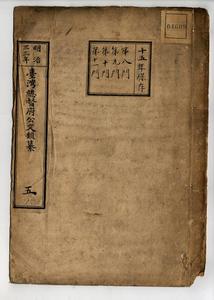 明治
三十年
臺灣總督府公文類纂
五
十五年保存
第八門
第九門
第十門
第十一門